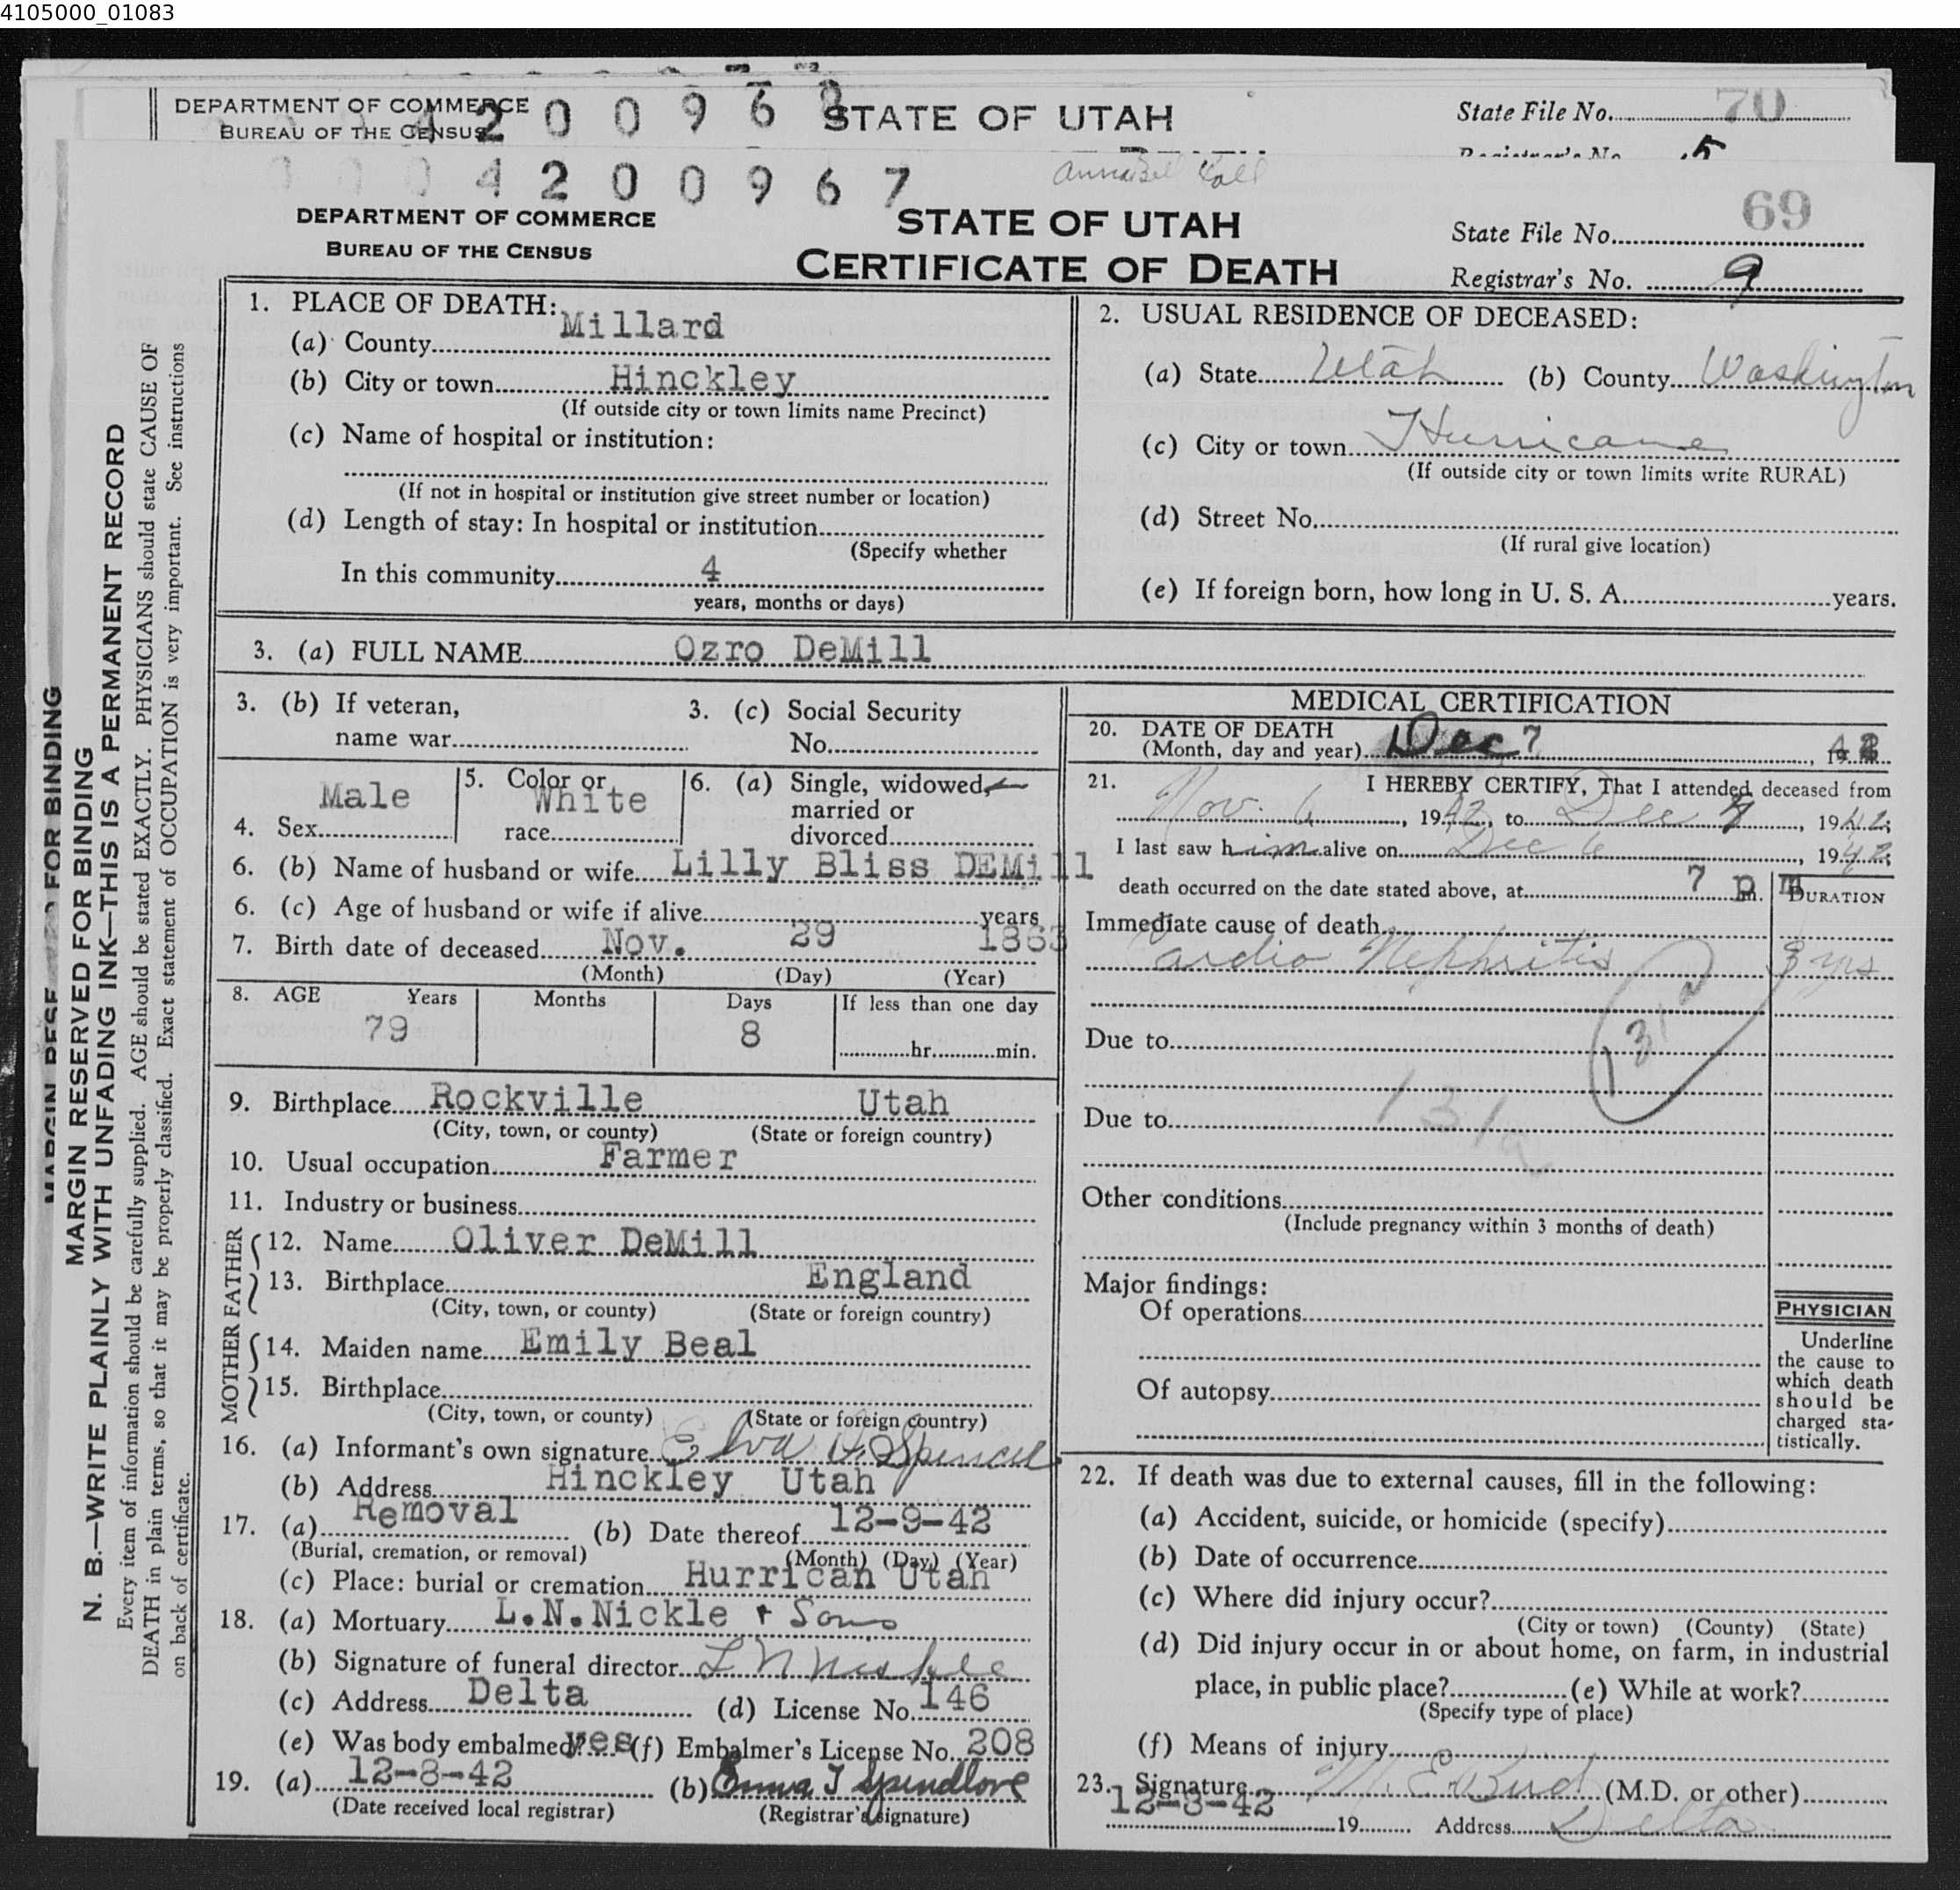 4105000_01083
DEPARTMENT OF COMMERCE
BUREAU OF THE CENSUS
4200968
STATE OF UTAH
State File No. 70
Registrar's No. 5
0004200967
DEPARTMENT OF COMMERCE
BUREAU OF THE CENSUS
STATE OF UTAH
CERTIFICATE OF DEATH
State File No. 69
Registrar's No. 9
MARGIN RESERVED FOR BINDING
N. B.—WRITE PLAINLY WITH UNFADING INK—THIS IS A PERMANENT RECORD
Every item of information should be carefully supplied. AGE should be stated EXACTLY. PHYSICIANS should state CAUSE OF
DEATH in plain terms, so that it may be properly classified. Exact statement of OCCUPATION is very important. See instructions
on back of certificate.
1. PLACE OF DEATH:
(a) County Millard
(b) City or town Hinckley
(If outside city or town limits name Precinct)
(c) Name of hospital or institution:
(If not in hospital or institution give street number or location)
(d) Length of stay: In hospital or institution
(Specify whether
In this community 4
years, months or days)
2. USUAL RESIDENCE OF DECEASED:
(a) State Utah (b) County Washington
(c) City or town Hurricane
(If outside city or town limits write RURAL)
(d) Street No.
(If rural give location)
(e) If foreign born, how long in U. S. A. years.
3. (a) FULL NAME Ozro DeMill
3. (b) If veteran,
name war
3. (c) Social Security
No.
4. Sex Male
5. Color or
race White
6. (a) Single, widowed,
married or
divorced
6. (b) Name of husband or wife Lilly Bliss DEMill
6. (c) Age of husband or wife if alive years
7. Birth date of deceased Nov. 29 1863
(Month) (Day) (Year)
8. AGE Years Months Days If less than one day
79 8 hr. min.
9. Birthplace Rockville Utah
(City, town, or county) (State or foreign country)
10. Usual occupation Farmer
11. Industry or business
FATHER
12. Name Oliver DeMill
13. Birthplace England
(City, town, or county) (State or foreign country)
MOTHER
14. Maiden name Emily Beal
15. Birthplace
(City, town, or county) (State or foreign country)
16. (a) Informant's own signature Elva D. Spencer
(b) Address Hinckley Utah
17. (a) Removal (b) Date thereof 12-9-42
(Burial, cremation, or removal) (Month) (Day) (Year)
(c) Place: burial or cremation Hurrican Utah
18. (a) Mortuary L.N.Nickle + Sons
(b) Signature of funeral director L N Nickle
(c) Address Delta (d) License No. 146
(e) Was body embalmed? yes (f) Embalmer's License No. 208
19. (a) 12-8-42 (b) Emma T Spendlove
(Date received local registrar) (Registrar's signature)
MEDICAL CERTIFICATION
20. DATE OF DEATH
(Month, day and year) Dec 7, 1942
21. I HEREBY CERTIFY, That I attended deceased from
Nov. 6, 1942, to Dec 7, 1942;
I last saw him alive on Dec 6, 1942;
death occurred on the date stated above, at 7 p m. DURATION
Immediate cause of death
Cardio Nephritis 3 yrs
Due to
131a
Due to 131a
Other conditions
(Include pregnancy within 3 months of death)
Major findings:
Of operations
Of autopsy
PHYSICIAN
Underline
the cause to
which death
should be
charged sta-
tistically.
22. If death was due to external causes, fill in the following:
(a) Accident, suicide, or homicide (specify)
(b) Date of occurrence
(c) Where did injury occur?
(City or town) (County) (State)
(d) Did injury occur in or about home, on farm, in industrial
place, in public place? (e) While at work?
(Specify type of place)
(f) Means of injury
23. Signature M. E. Bird (M.D. or other)
12-8-42 19 Address Delta